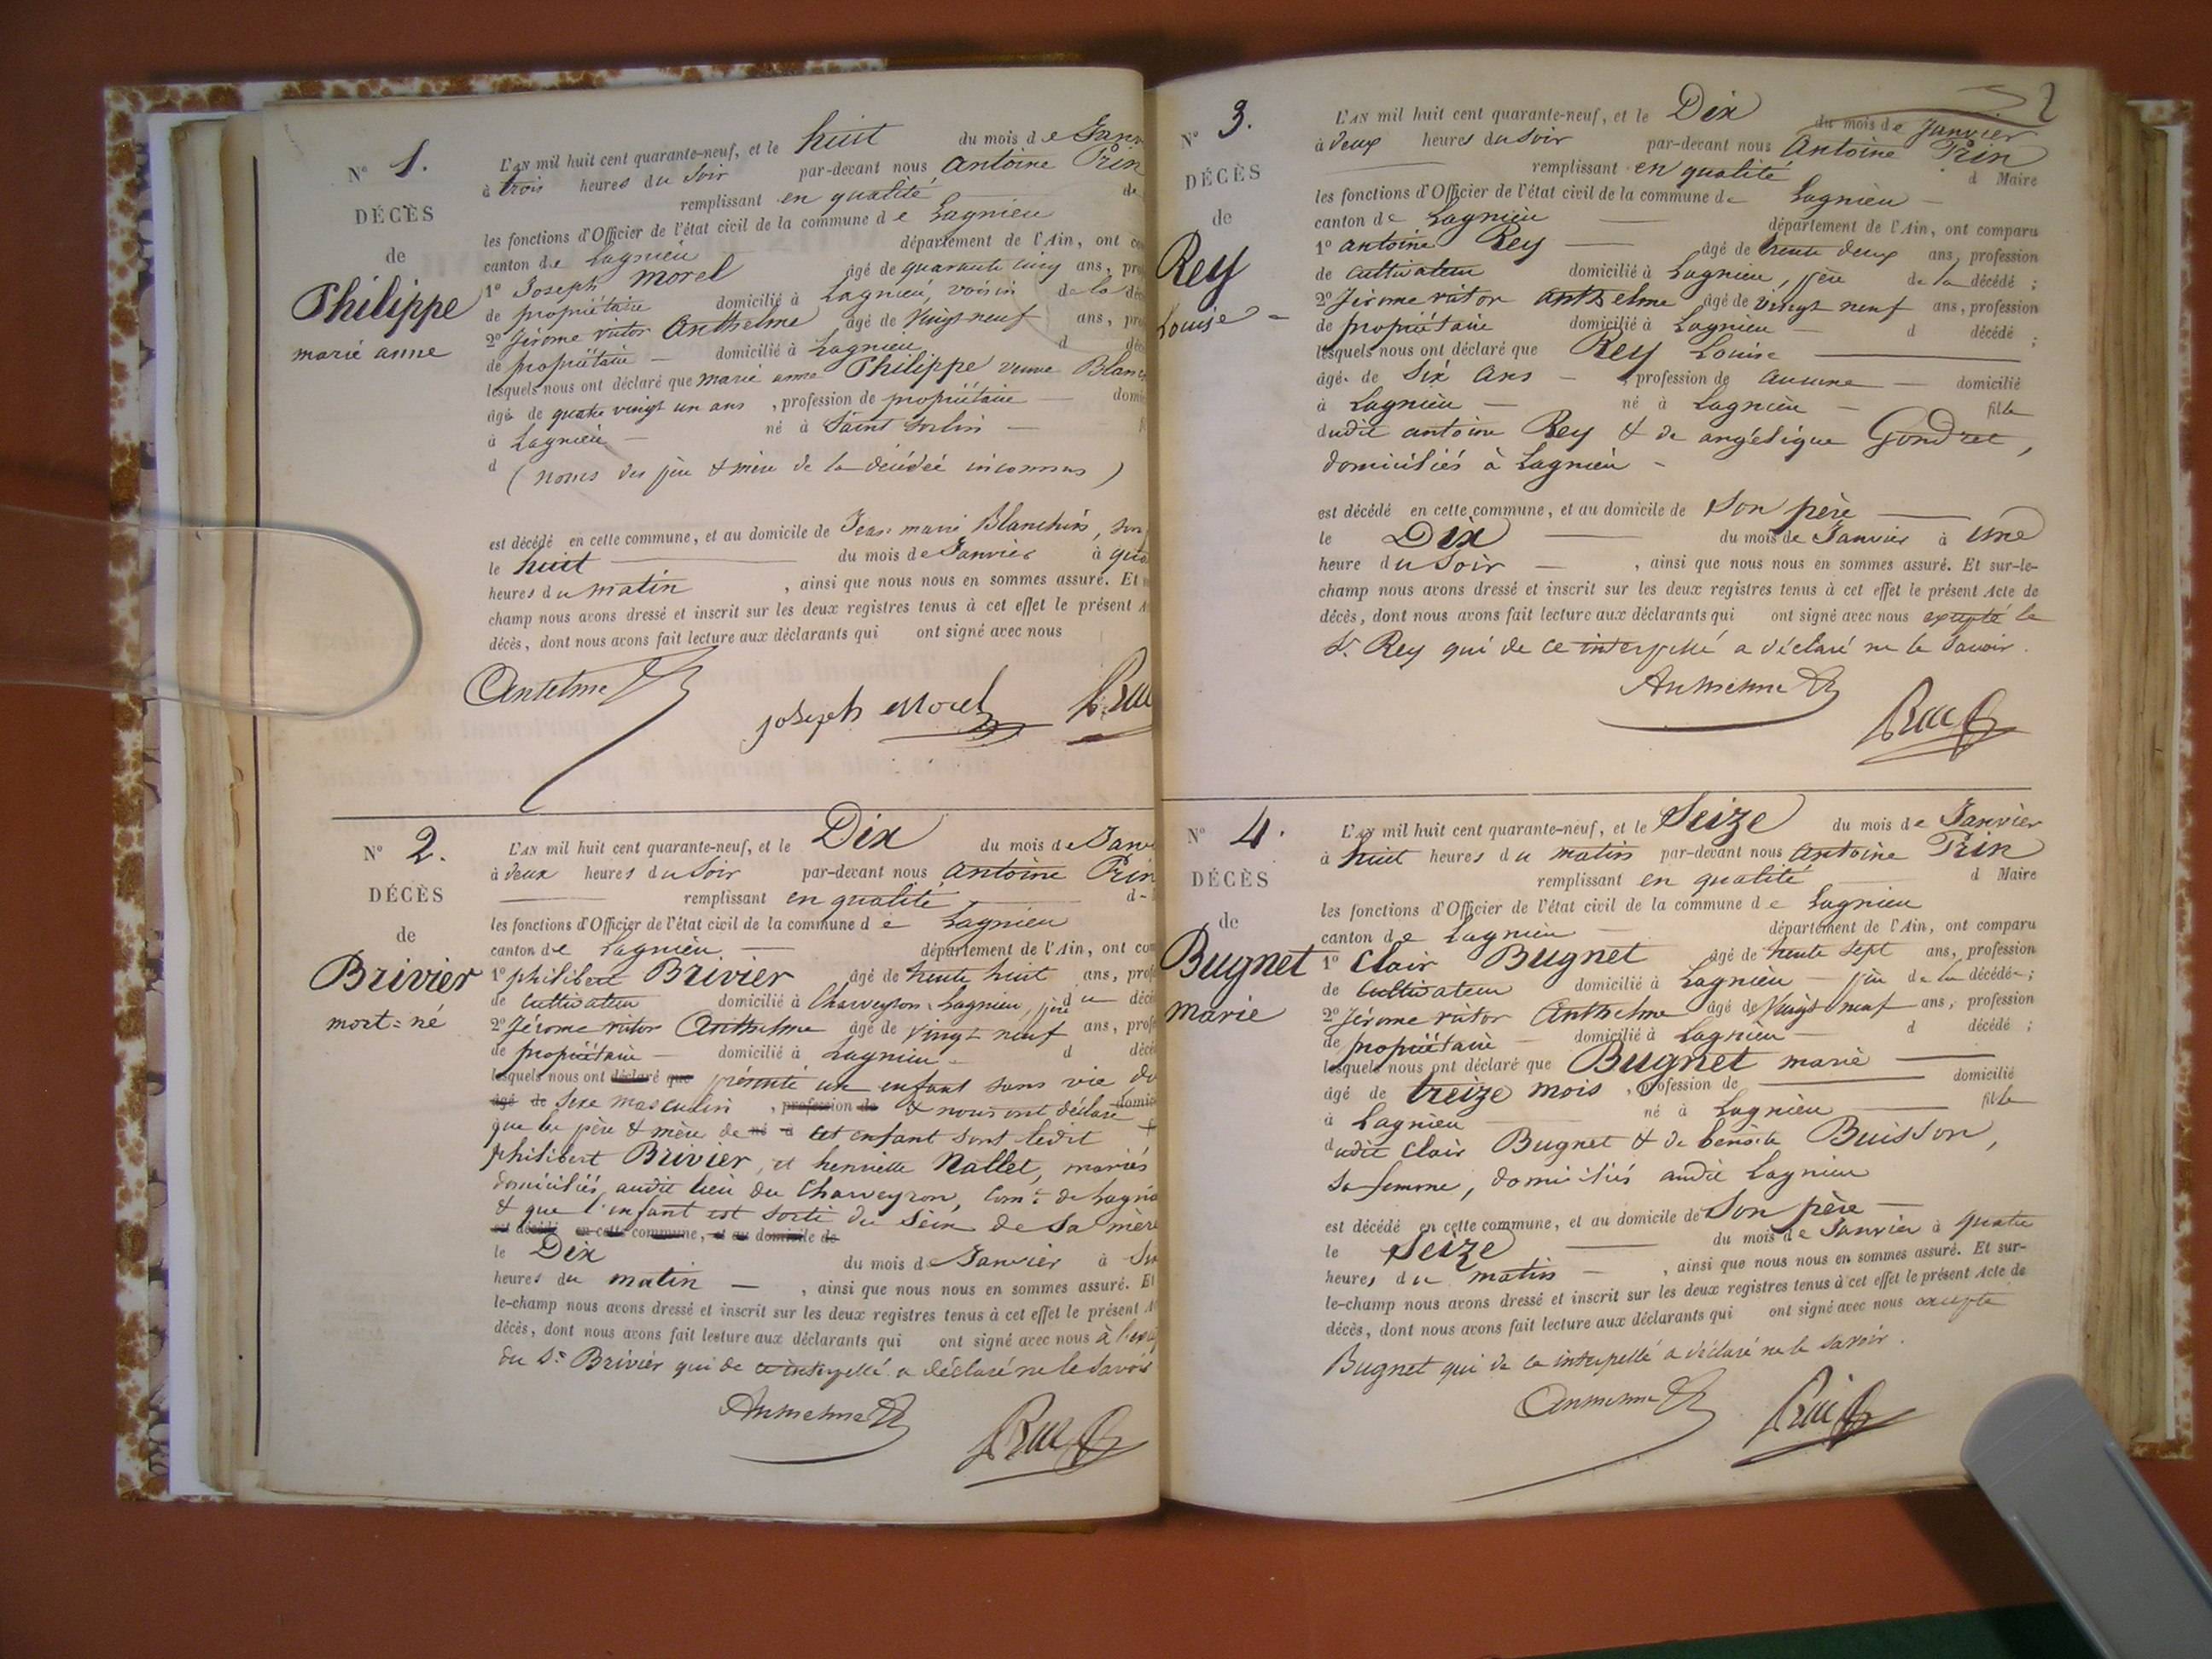 N° 1.
DÉCÈS
de
Philippe
marie anne
L'AN mil huit cent quarante-neuf, et le huit du mois de Janv
à trois heures du soir par-devant nous antoine Prin
remplissant en qualité de
les fonctions d'Officier de l'état civil de la commune de Lagnieu
canton de Lagnieu département de l'Ain, ont co
1° Joseph Morel âgé de quarante cinq ans, pro
de propriétaire domicilié à Lagnieu, voisin de la déc
2° Jérome victor Anthelme âgé de vingt neuf ans, pro
de propriétaire domicilié à Lagnieu d déc
lesquels nous ont déclaré que marie anne Philippe veuve Blanc
âgé de quatre vingt un ans, profession de propriétaire domic
à Lagnieu né à Saint Sorlin
d (noms des père & mère de la décédée inconnus)
est décédé en cette commune, et au domicile de Jean marie Blanchin, son
le huit du mois de Janvier à qua
heures du matin, ainsi que nous nous en sommes assuré. Et
champ nous avons dressé et inscrit sur les deux registres tenus à cet effet le présent A
décès, dont nous avons fait lecture aux déclarants qui ont signé avec nous
Antelme
joseph Morel
N° 2.
DÉCÈS
de
Brivier
mort-né
L'AN mil huit cent quarante-neuf, et le Dix du mois de Janvi
à deux heures du Soir par-devant nous antoine Prin
remplissant en qualité d
les fonctions d'Officier de l'état civil de la commune de Lagnieu
canton de Lagnieu département de l'Ain, ont com
1° philibert Brivier âgé de trente huit ans, profe
de cultivateur domicilié à Charveyron, Lagnieu, père du décé
2° Jérome victor Anthelme âgé de vingt neuf ans, profe
de propriétaire domicilié à Lagnieu d décé
lesquels nous ont déclaré que présenté un enfant sans vie du
âgé de sexe masculin, profession de & nous ont déclaré domic
que les père & mère de né à cet enfant sont ledit
philibert Brivier, et henriette Nallet, mariés
domiciliés audit lieu du Charveyron, Com.e de Lagnie
& que l'enfant est sorti du sein de sa mère
est décédé en cette commune, et au domicile de
le Dix du mois de Janvier à
heures du matin, ainsi que nous nous en sommes assuré. Et
le-champ nous avons dressé et inscrit sur les deux registres tenus à cet effet le présent A
décès, dont nous avons fait lecture aux déclarants qui ont signé avec nous à l'exce
du Sr Brivier qui de ce interpellé a déclaré ne le savoir
Anthelme
2
N° 3.
DÉCÈS
de
Rey
Louise
L'AN mil huit cent quarante-neuf, et le Dix du mois de Janvier
à deux heures du soir par-devant nous Antoine Prin
remplissant en qualité d Maire
les fonctions d'Officier de l'état civil de la commune de Lagnieu
canton de Lagnieu département de l'Ain, ont comparu
1° antoine Rey âgé de trente deux ans, profession
de cultivateur domicilié à Lagnieu, père de la décédé ;
2° Jérome victor anthelme âgé de vingt neuf ans, profession
de propriétaire domicilié à Lagnieu d décédé ;
lesquels nous ont déclaré que Rey Louise
âgé de Six ans, profession de aucune domicilié
à Lagnieu né à Lagnieu fille
dudit antoine Rey & de angélique Gondret,
domiciliés à Lagnieu
est décédé en cette commune, et au domicile de Son père
le Dix du mois de Janvier à une
heure du Soir, ainsi que nous nous en sommes assuré. Et sur-le-
champ nous avons dressé et inscrit sur les deux registres tenus à cet effet le présent Acte de
décès, dont nous avons fait lecture aux déclarants qui ont signé avec nous excepté le
Sr Rey qui de ce interpellé a déclaré ne le savoir.
Anthelme
N° 4.
DÉCÈS
de
Bugnet
marie
L'AN mil huit cent quarante-neuf, et le Seize du mois de Janvier
à huit heures du matin par-devant nous Antoine Prin
remplissant en qualité d Maire
les fonctions d'Officier de l'état civil de la commune de Lagnieu
canton de Lagnieu département de l'Ain, ont comparu
1° Clair Bugnet âgé de trente sept ans, profession
de cultivateur domicilié à Lagnieu père de la décédée ;
2° Jérome victor Anthelme âgé de vingt neuf ans, profession
de propriétaire domicilié à Lagnieu d décédé ;
lesquels nous ont déclaré que Bugnet marie
âgé de treize mois, profession de domicilié
à Lagnieu né à Lagnieu fille
dudit Clair Bugnet & de benoite Buisson,
sa femme, domiciliés audit Lagnieu
est décédé en cette commune, et au domicile de Son père
le Seize du mois de Janvier à quatre
heures du matin, ainsi que nous nous en sommes assuré. Et sur-
le-champ nous avons dressé et inscrit sur les deux registres tenus à cet effet le présent Acte de
décès, dont nous avons fait lecture aux déclarants qui ont signé avec nous excepté
Bugnet qui de ce interpellé a déclaré ne le savoir.
Anthelme